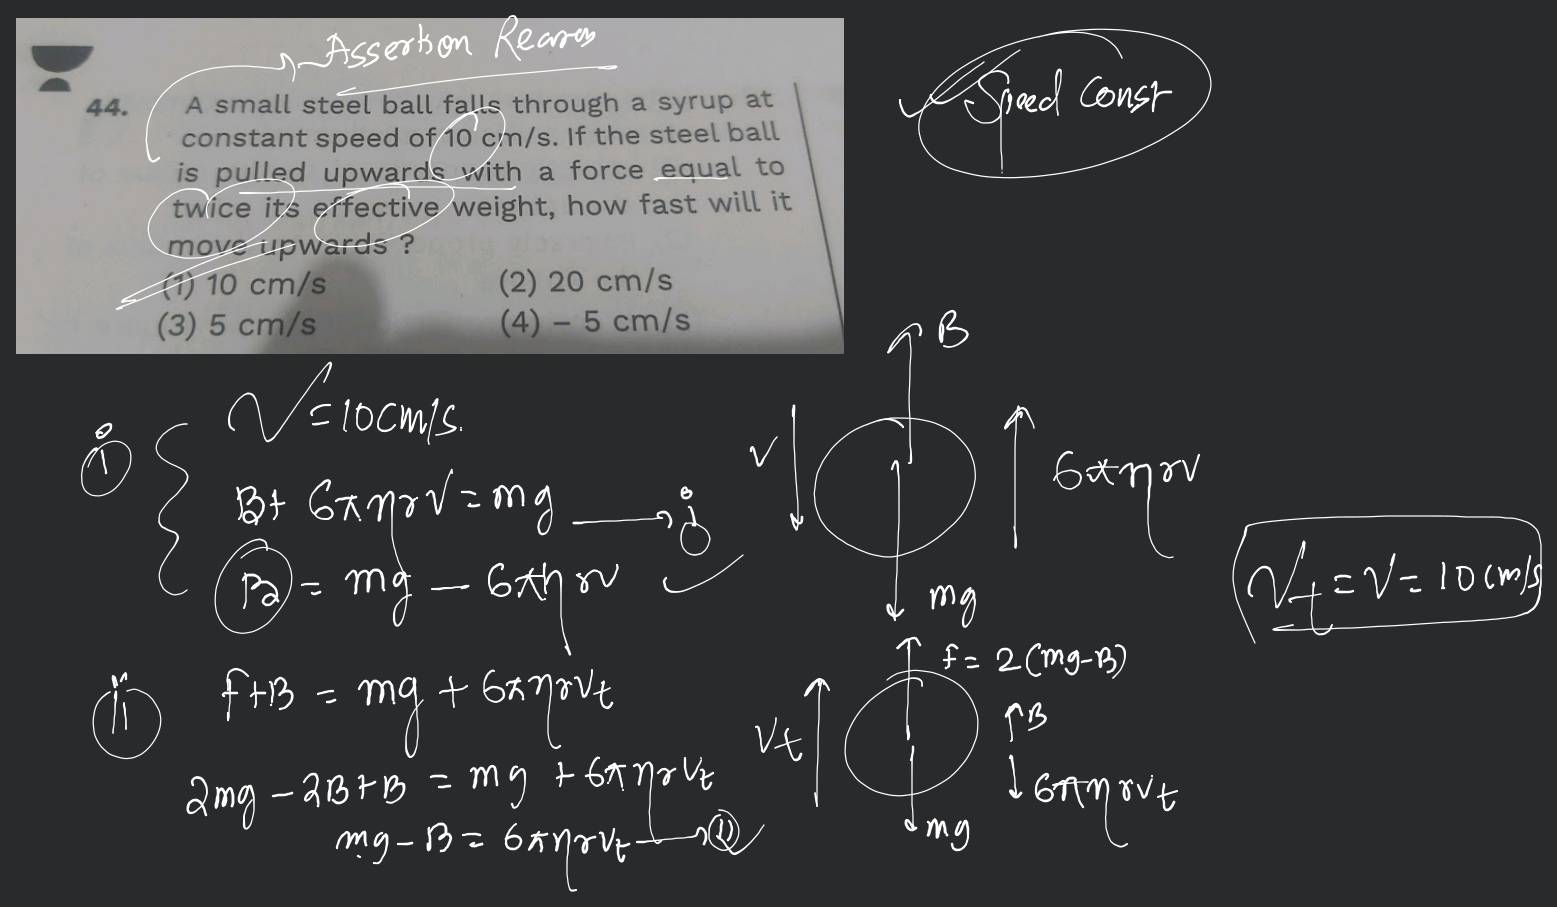 Assertion Reason
44. A small steel ball falls through a syrup at
constant speed of 10 cm/s. If the steel ball
is pulled upwards with a force equal to
twice its effective weight, how fast will it
move upwards ?
(1) 10 cm/s (2) 20 cm/s
(3) 5 cm/s (4) – 5 cm/s
Speed Const
i
V = 10 cm/s.
B + 6πηrV = mg → i
B = mg – 6πηrv
ii
f + B = mg + 6πηrVt
2mg – 2B + B = mg + 6πηrVt
mg – B = 6πηrVt → ii
B
V
6πηrv
mg
f = 2(mg–B)
B
Vt
6πηrvt
mg
Vt = V = 10 cm/s